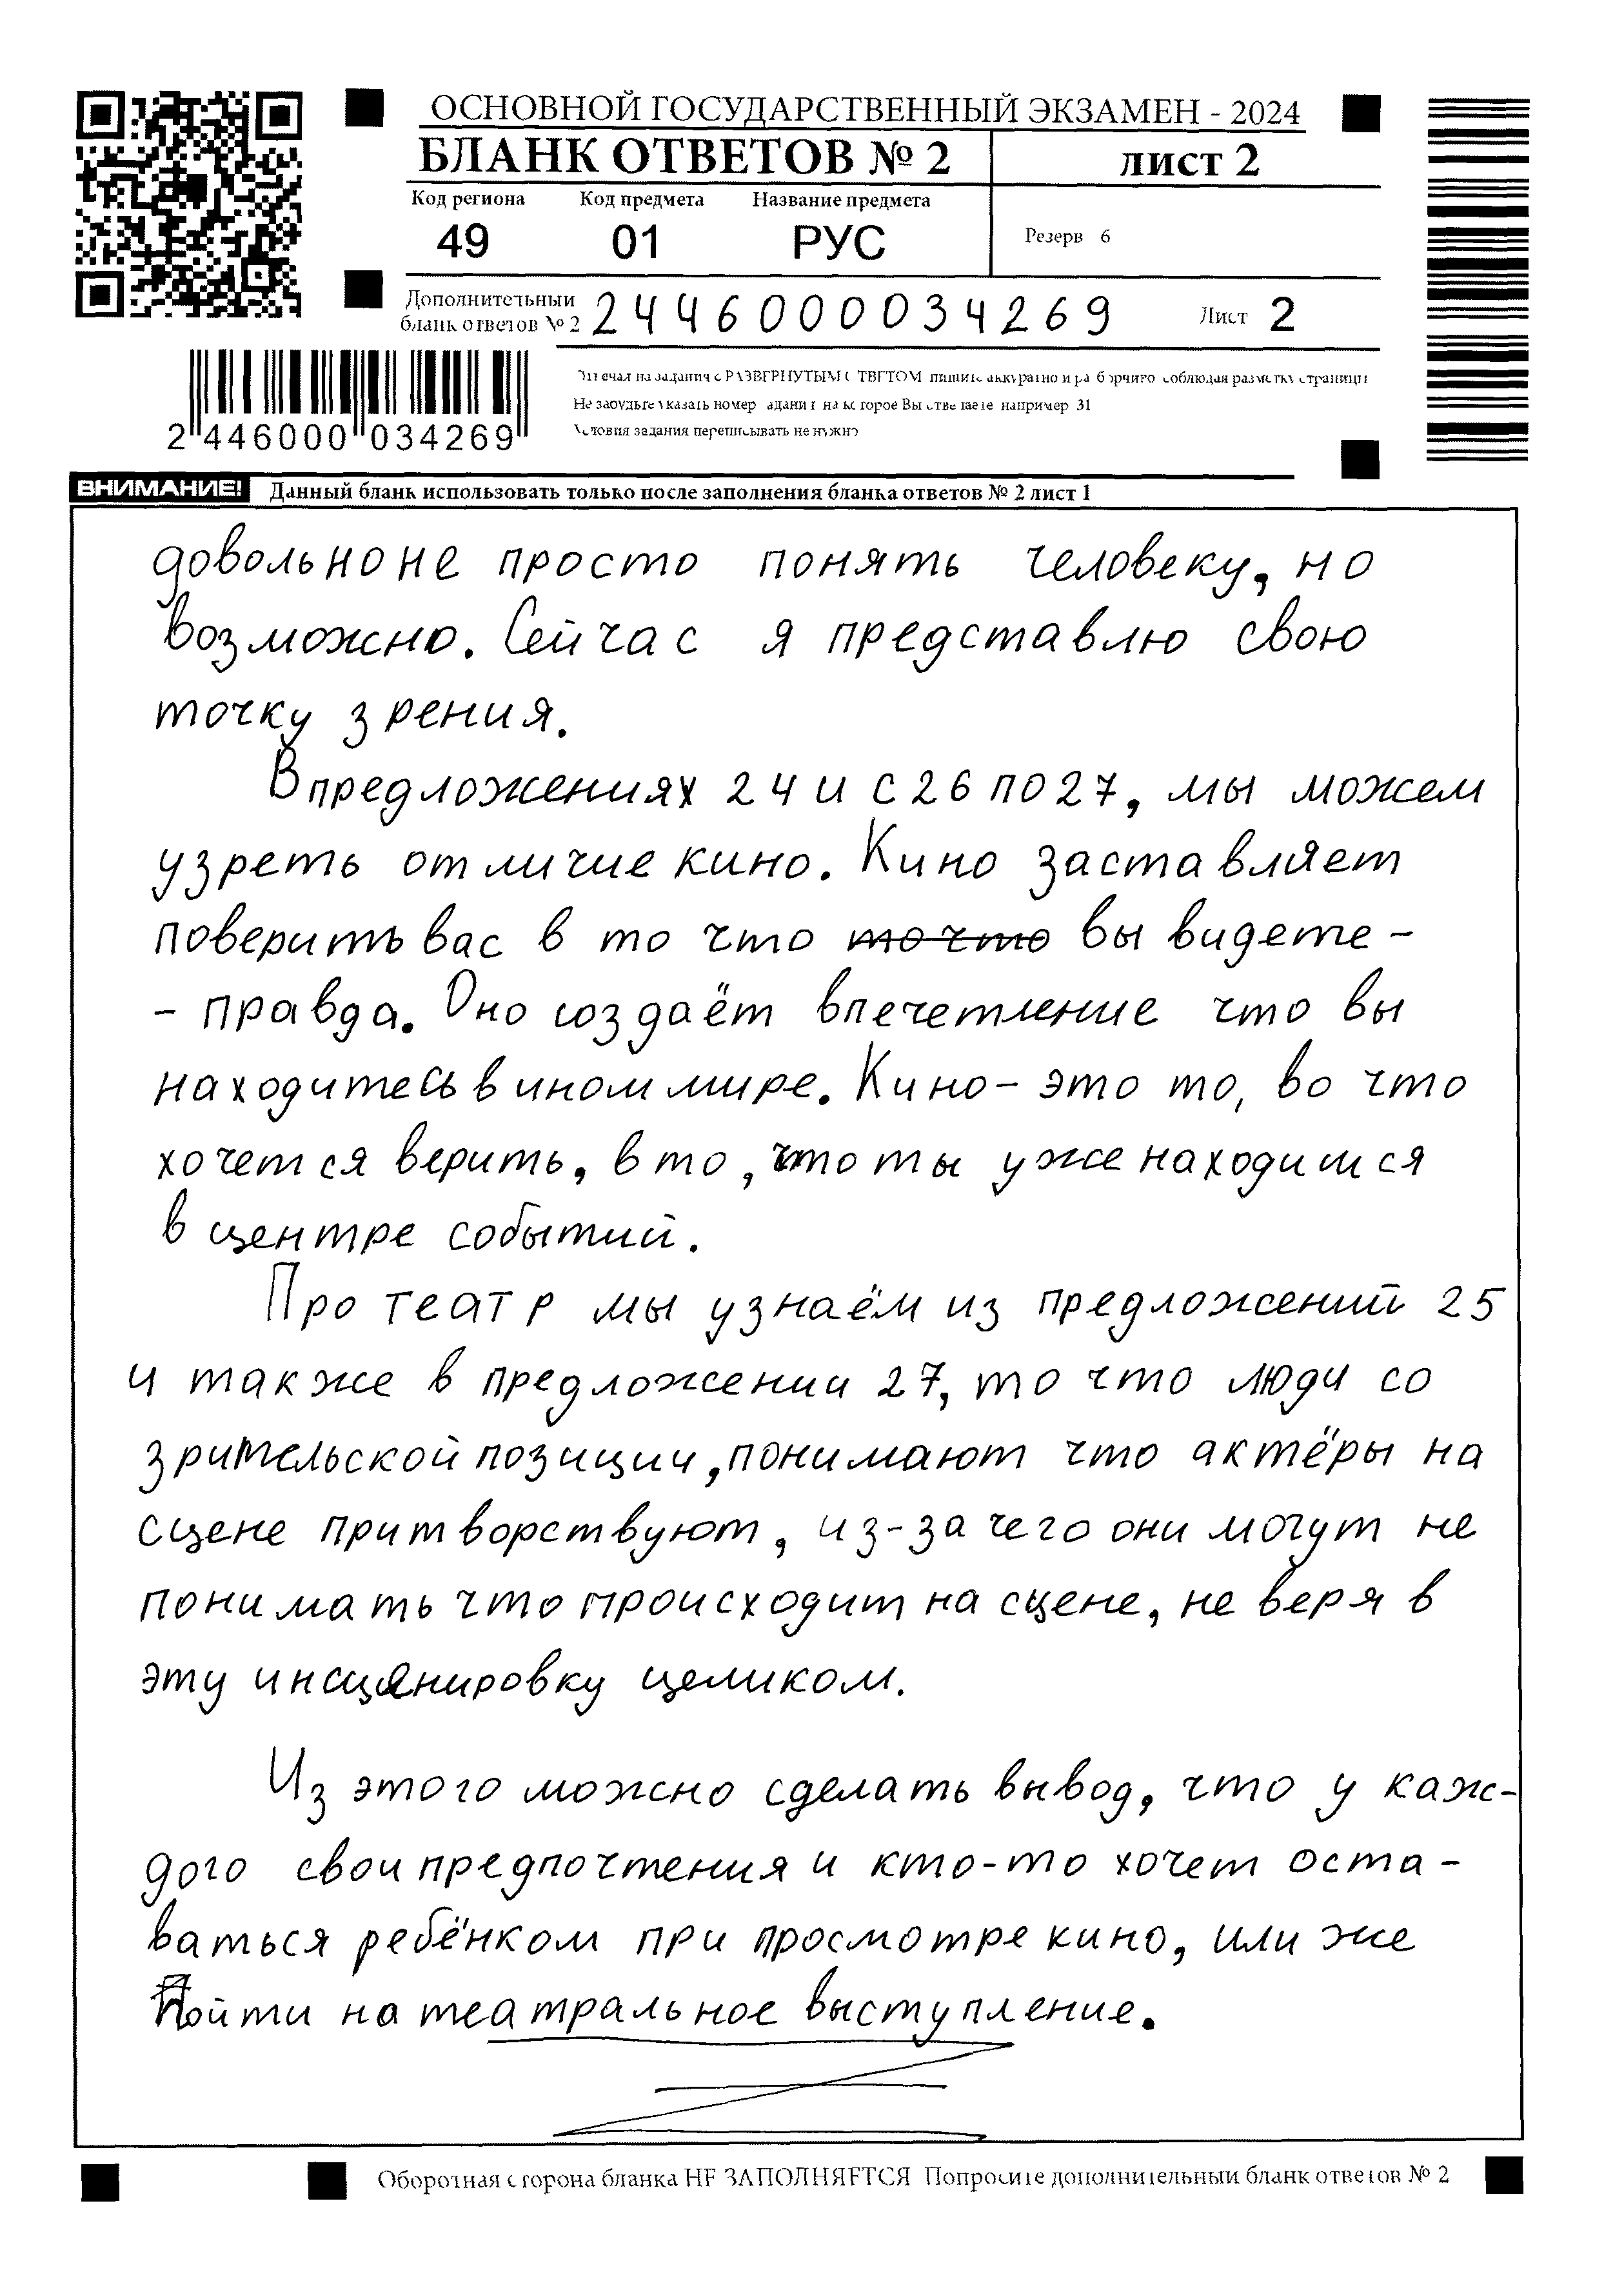 ОСНОВНОЙ ГОСУДАРСТВЕННЫЙ ЭКЗАМЕН - 2024
БЛАНК ОТВЕТОВ № 2 лист 2
Код региона Код предмета Название предмета
49 01 РУС Резерв 6
Дополнительный
бланк ответов № 2 2446000034269 Лист 2
2 446000 034269
Отвечая на задания с РАЗВЕРНУТЫМ ОТВЕТОМ пишите аккуратно и разборчиво соблюдая разметку страницы
Не забудьте указать номер задания на которое Вы отвечаете например 31
Условия задания переписывать не нужно
ВНИМАНИЕ! Данный бланк использовать только после заполнения бланка ответов № 2 лист 1
довольно не просто понять человеку, но
возможно. Сейчас я представлю свою
точку зрения.
В предложениях 24 и с 26 по 27, мы можем
узреть отличие кино. Кино заставляет
поверить вас в то что то что вы видете -
- правда. Оно создаёт впечетление что вы
находитесь в ином мире. Кино - это то, во что
хочется верить, в то, что ты уже находишся
в центре событий.
Про театр мы узнаём из предложений 25
и также в предложении 27, то что люди со
зрительской позиции, понимают что актёры на
сцене притворствуют, из-за чего они могут не
понимать что происходит на сцене, не веря в
эту инсценировку целиком.
Из этого можно сделать вывод, что у каж-
дого свои предпочтения и кто-то хочет оста-
ваться ребёнком при просмотре кино, или же
Пойти на театральное выступление.
Оборотная сторона бланка НЕ ЗАПОЛНЯЕТСЯ Попросите дополнительный бланк ответов № 2